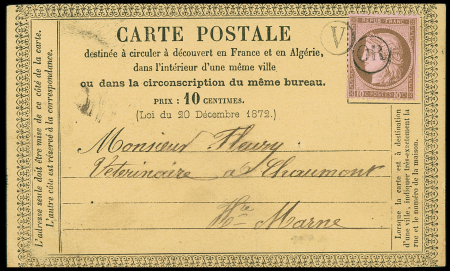 L'adresse seule doit être mise de ce côté de la carte.
L'autre côté est réservé à la correspondance.
CARTE POSTALE
destinée à circuler à découvert en France et en Algérie,
dans l'intérieur d'une même ville
ou dans la circonscription du même bureau.
PRIX : 10 CENTIMES.
(Loi du 20 Décembre 1872.)
REPUB. FRANC.
10 POSTES 10 C
OR
Monsieur Fleury
Veterinaire a Chaumont
Hte Marne
Lorsque la carte est à destination
d'une ville, indiquer très-exactement la
rue et le numéro de la maison.